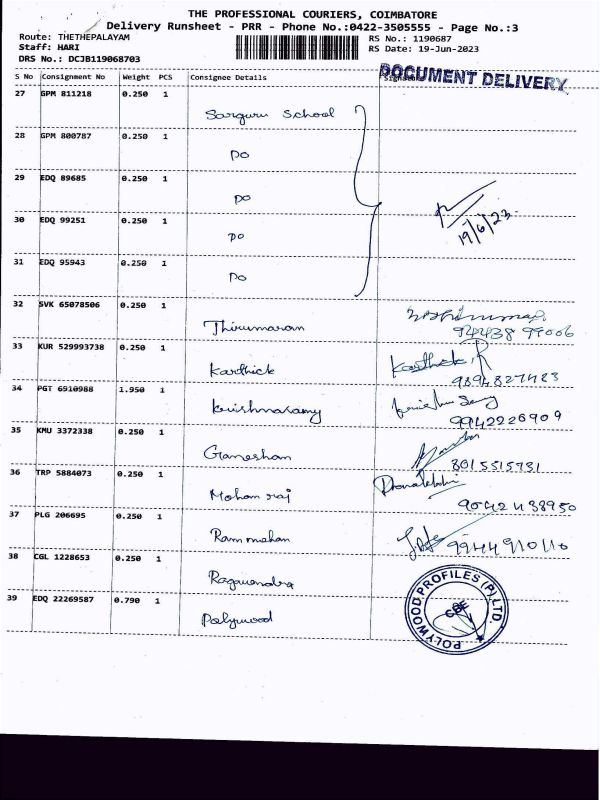 THE PROFESSIONAL COURIERS, COIMBATORE
Delivery Runsheet - PRR - Phone No.:0422-3505555 - Page No.:3
Route: THETHEPALAYAM
RS No.: 1190687
Staff: HARI
RS Date: 19-Jun-2023
DRS No.: DCJB119068703
DOCUMENT DELIVERY
S No Consignment No Weight PCS Consignee Details
27 GPM 811218 0.250 1
Sarguru School
28 GPM 800787 0.250 1
Do
29 EDQ 89685 0.250 1
Do
30 EDQ 99251 0.250 1
Do
19/6/23
31 EDQ 95943 0.250 1
Do
32 SVK 65078506 0.250 1
Thirumaran
94438 99006
33 KUR 529993738 0.250 1
Karthick Karthick R
9894827483
34 PGT 6910988 1.950 1
krishnasamy
9942226909
35 KMU 3372338 0.250 1
Ganesham
8015515731
36 TRP 5884073 0.250 1
Mohan raj
9042438950
37 PLG 206695 0.250 1
Ram mohan
9944910110
38 CGL 1228653 0.250 1
Ragavendra
39 EDQ 22269587 0.790 1
Polywood
POLYWOOD PROFILES (P) LTD.
CBE